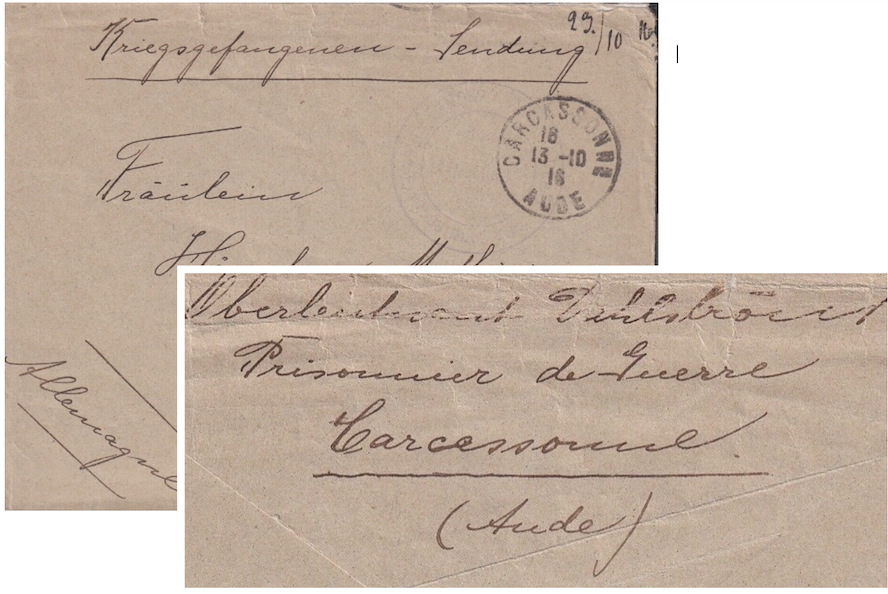 29./10 16.
Kriegsgefangenen - Sendung
CARCASSONNE
18
13 -10
16
AUDE
Fräulein
Allemagne
Oberleutnant
Prisonnier de Guerre
Carcessonne
(Aude)